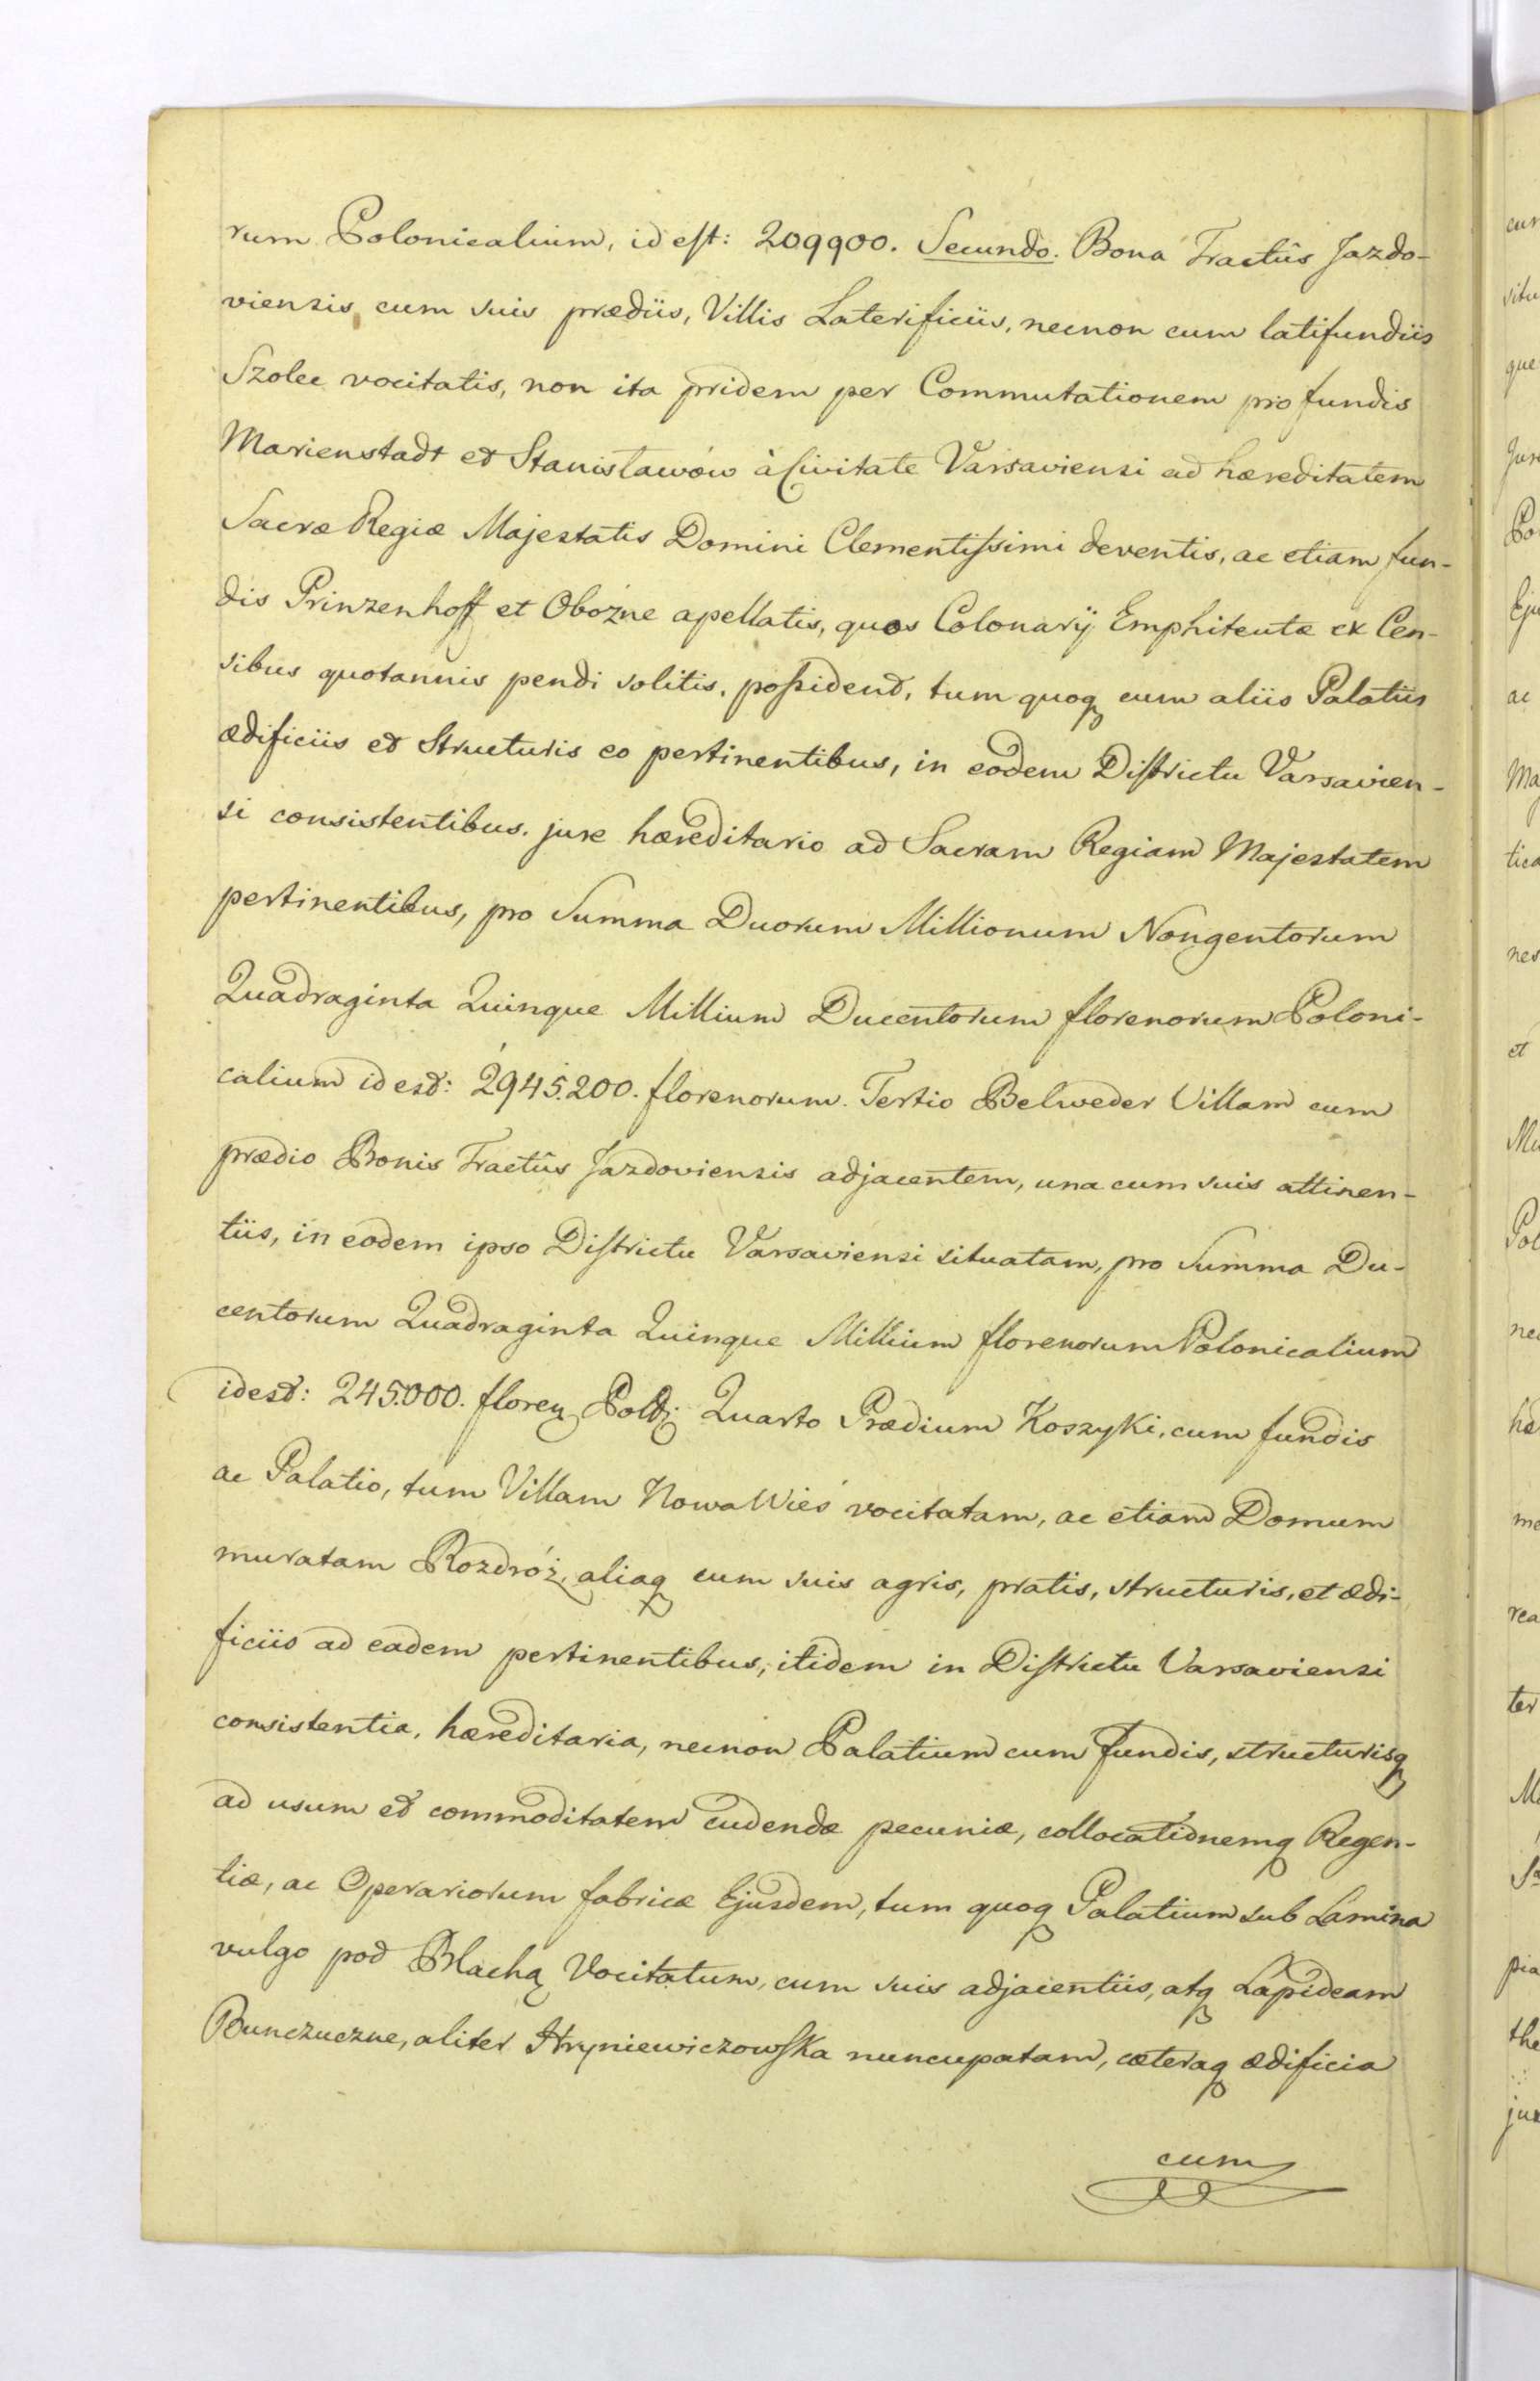 rum Polonicalium, id est: 209900. Secundo. Bona Tractûs Jazdo-
viensis, cum suis prædiis, Villis Laterificiis, necnon cum latifundiis
Szolec vocitatis, non ita pridem per Commutationem pro fundis
Marienstadt et Stanisławów à Civitate Varsaviensi ad hæreditatem
Sacræ Regiæ Majestatis Domini Clementissimi deventis, ac etiam fun-
dis Prinzenhoff et Obożne apellatis, quos Colonarÿ Emphiteutæ ex Cen-
sibus quotannis pendi solitis, possident, tum quoq cum aliis Palatiis
ædificiis et Structuris eo pertinentibus, in eodem Districtu Varsavien-
si consistentibus. jure hæreditario ad Sacram Regiam Majestatem
pertinentibus, pro Summa Duorum Millionum Nongentorum
Quadraginta Quinque Millium Ducentorum florenorum Poloni-
calium id est: 2945.200. florenorum. Tertio Belweder Villam cum
prædio Bonis Tractûs Jazdoviensis adjacentem, una cum suis attinen-
tiis, in eodem ipso Districtu Varsaviensi situatam, pro Summa Du-
centorum Quadraginta Quinque Millium florenorum Polonicalium
id est: 245.000. floren Pold: Quarto Prædium Koszyki, cum fundis
ac Palatio, tum Villam Nowa Wieś vocitatam, ac etiam Domum
muratam Rozdróż, aliaq cum suis agris, pratis, structuris, et ædi-
ficiis ad eadem pertinentibus, itidem in Districtu Varsaviensi
consistentia, hæreditaria, necnon Palatium cum fundis, structurisq
ad usum et commoditatem cudendæ pecuniæ, collocationemq Regen-
tiæ, ac Operariorum fabricæ Ejusdem, tum quoq Palatium sub Lamina
vulgo pod Blachą Vocitatum, cum suis adjacentiis, atq Lapideam
Bunczuczne, aliter Hryniewiczowska nuncupatam, cæteraq ædificia
cum